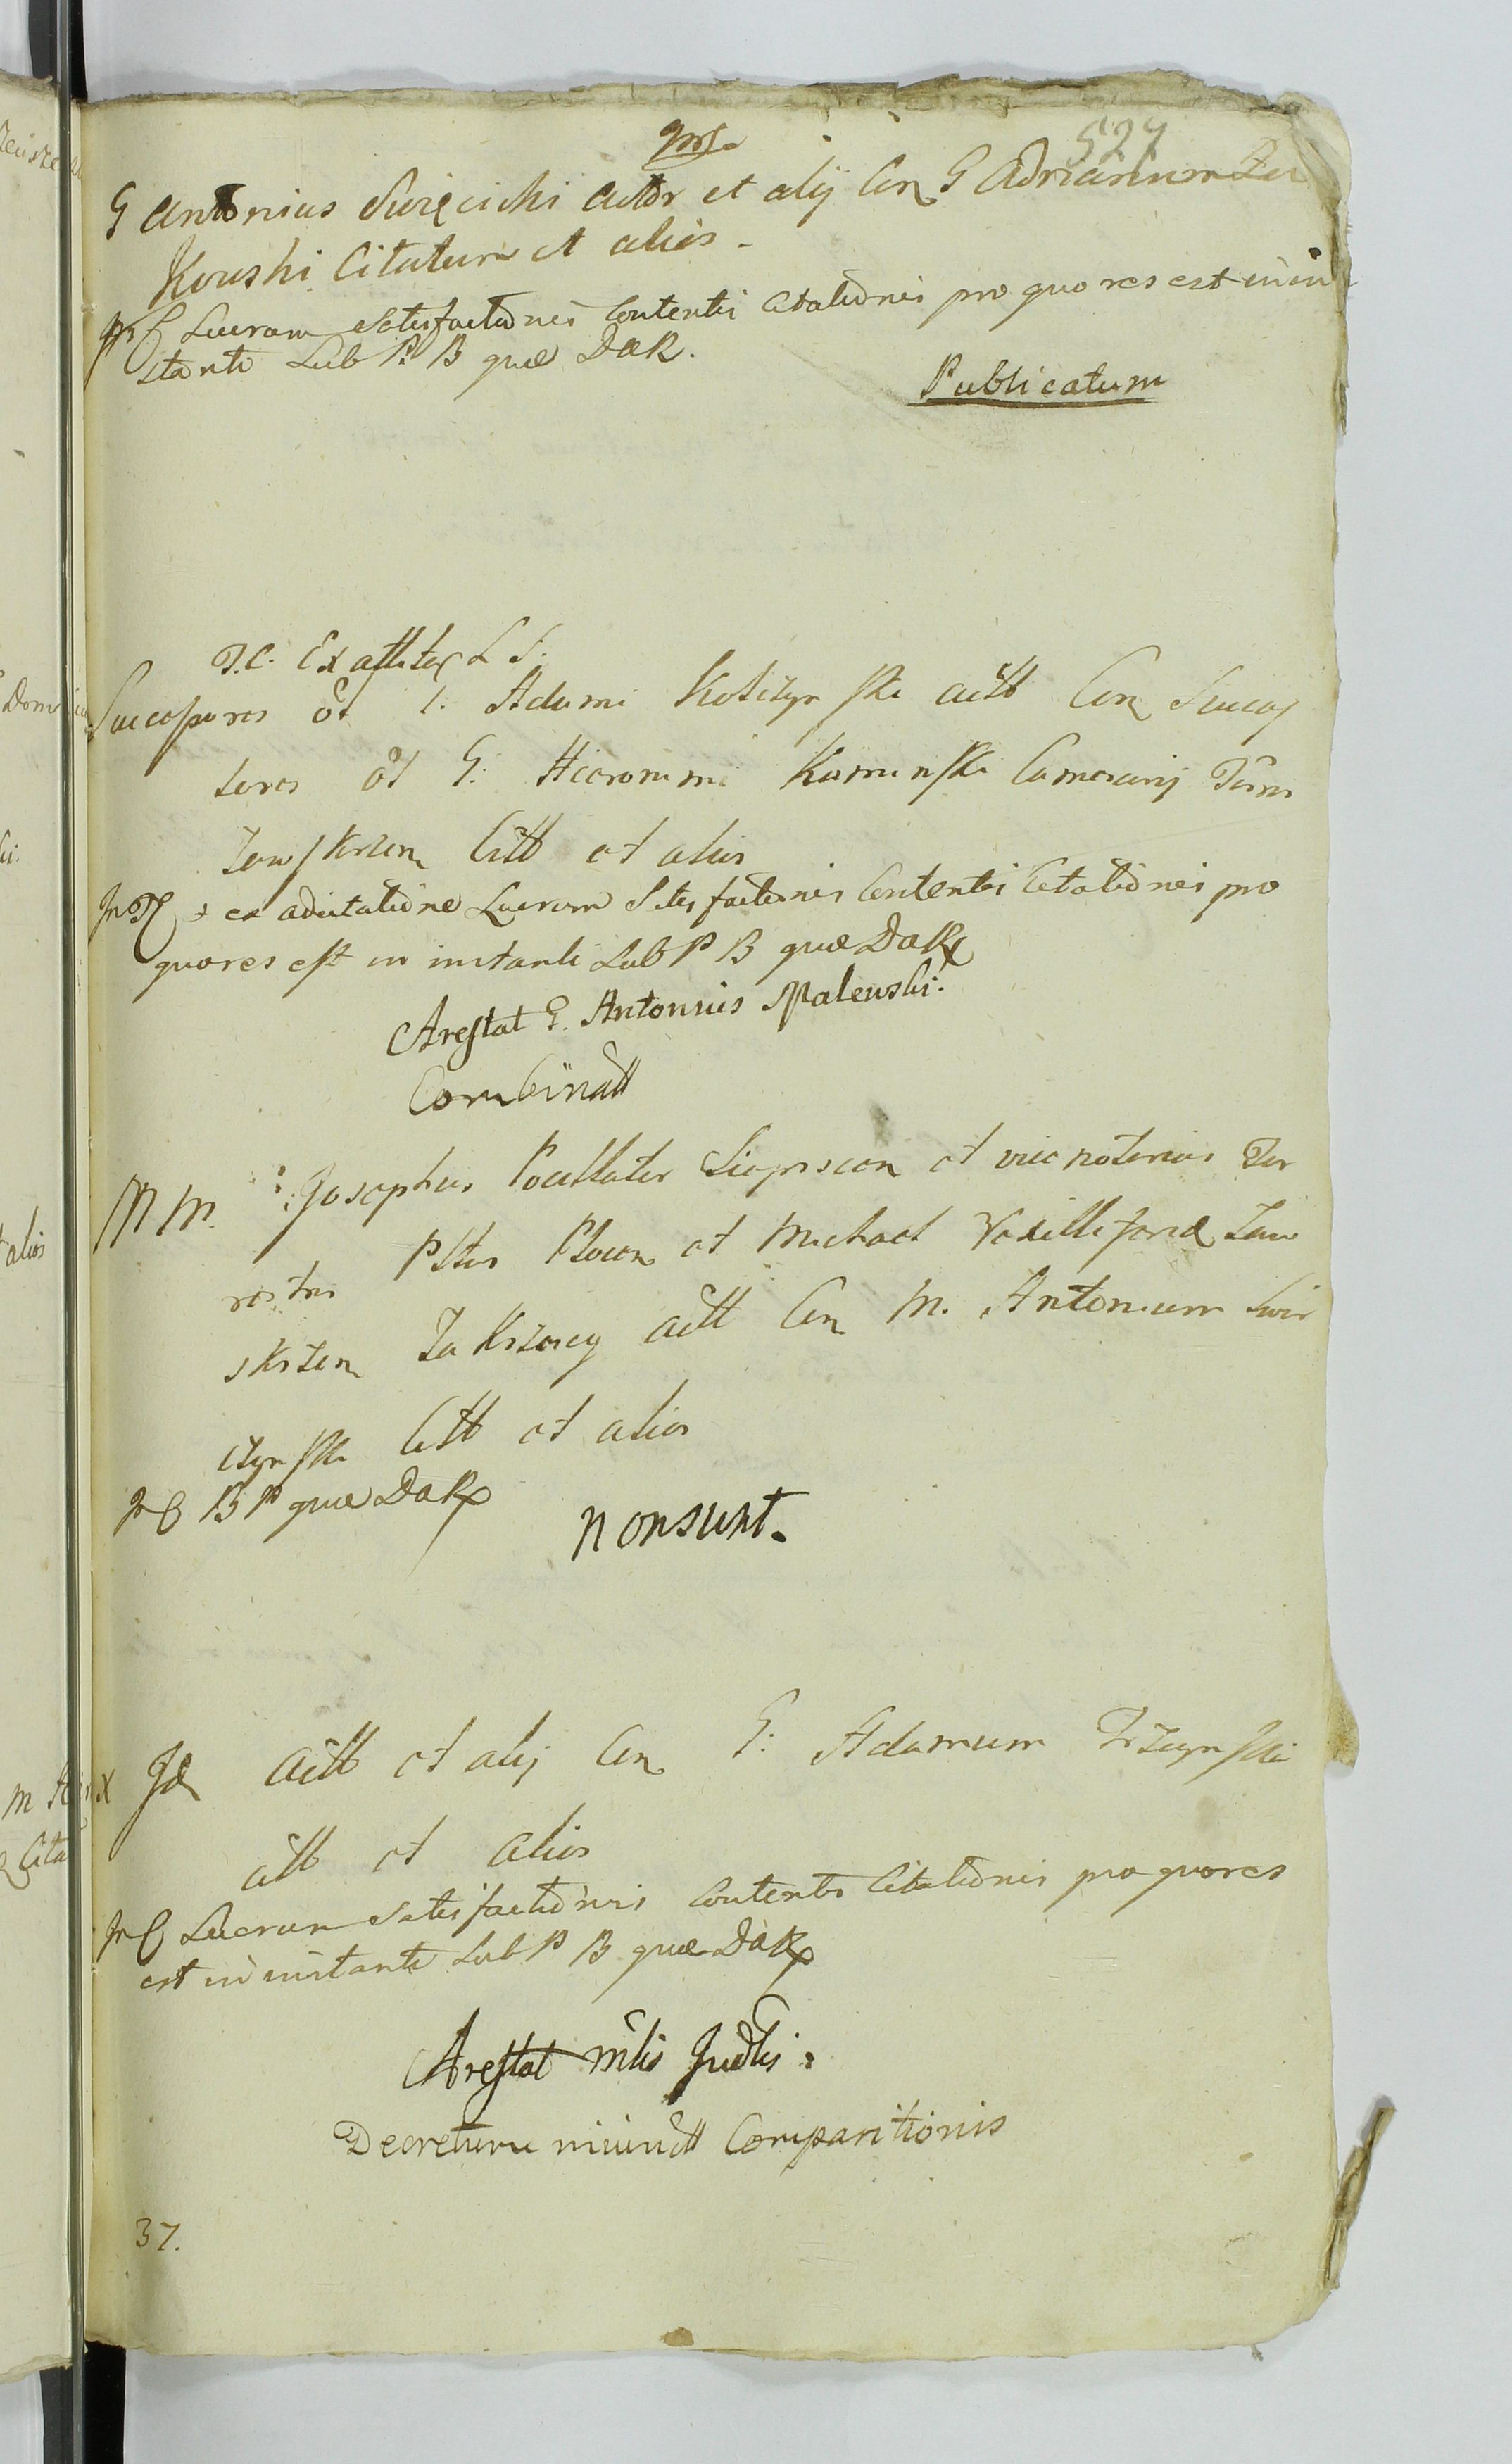 527
G Antonius Święcicki Actor et alij Con G Adrianum Za
Kowski Citatum et alios -
Lucrum Satisfactionis Contentis Citationis pro quo res est in in
stanti Sub P. B que DaR.
Publicatum
T.C. Ex
Successores ol G. Adami Kosiczynski actt Con Succes
sores ol G: Hieronimi Kaminski Camerarij Terris
Zawskrzen Citt et alios
ex adcitatione Lucrum Satisfactionis Contentis Citationis pro
quo res est in instanti Sub P B que DaR
Arestat G. Antonius Malewski.
Combinatt
M M. Josephus Pocillator et vice notarius Ter
restris Plocen et Michael Vexilliferid Zaw
skrzen Zakrzewscy actt Con M. Antonium Swir
czynski Citt et alios
B P que DaR
non sunt.
Id actt et alij Con G: Adamum
citt et alios
Lucrum Satisfactionis Contentis Citationis pro quo res
est in instanti Sub P B que DaR
Arestat mlis Judlis:
Decretum Comparitionis
37.